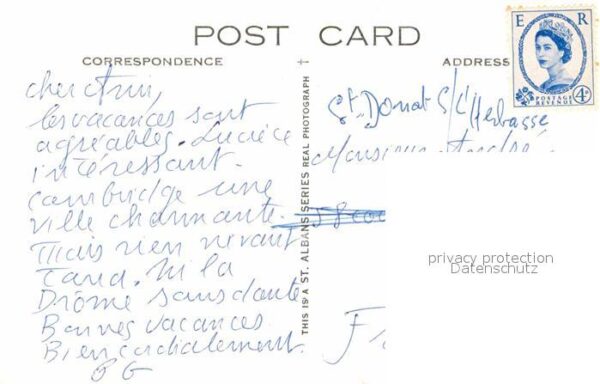 POST CARD
CORRESPONDENCE
ADDRESS
E R
POSTAGE
REVENUE
4D
Cher Ami,
les vacances sont
agréables. Lucièle
intéressant.
Cambridge une
ville charmante.
Mais rien ne vaut
Tana. Ni la
Drôme sans doute
Bonnes vacances
Bien cordialement.
THIS IS A ST. ALBANS SERIES REAL PHOTOGRAPH †
St Donat s/l'Herbasse
Monsieur
privacy protection
Datenschutz